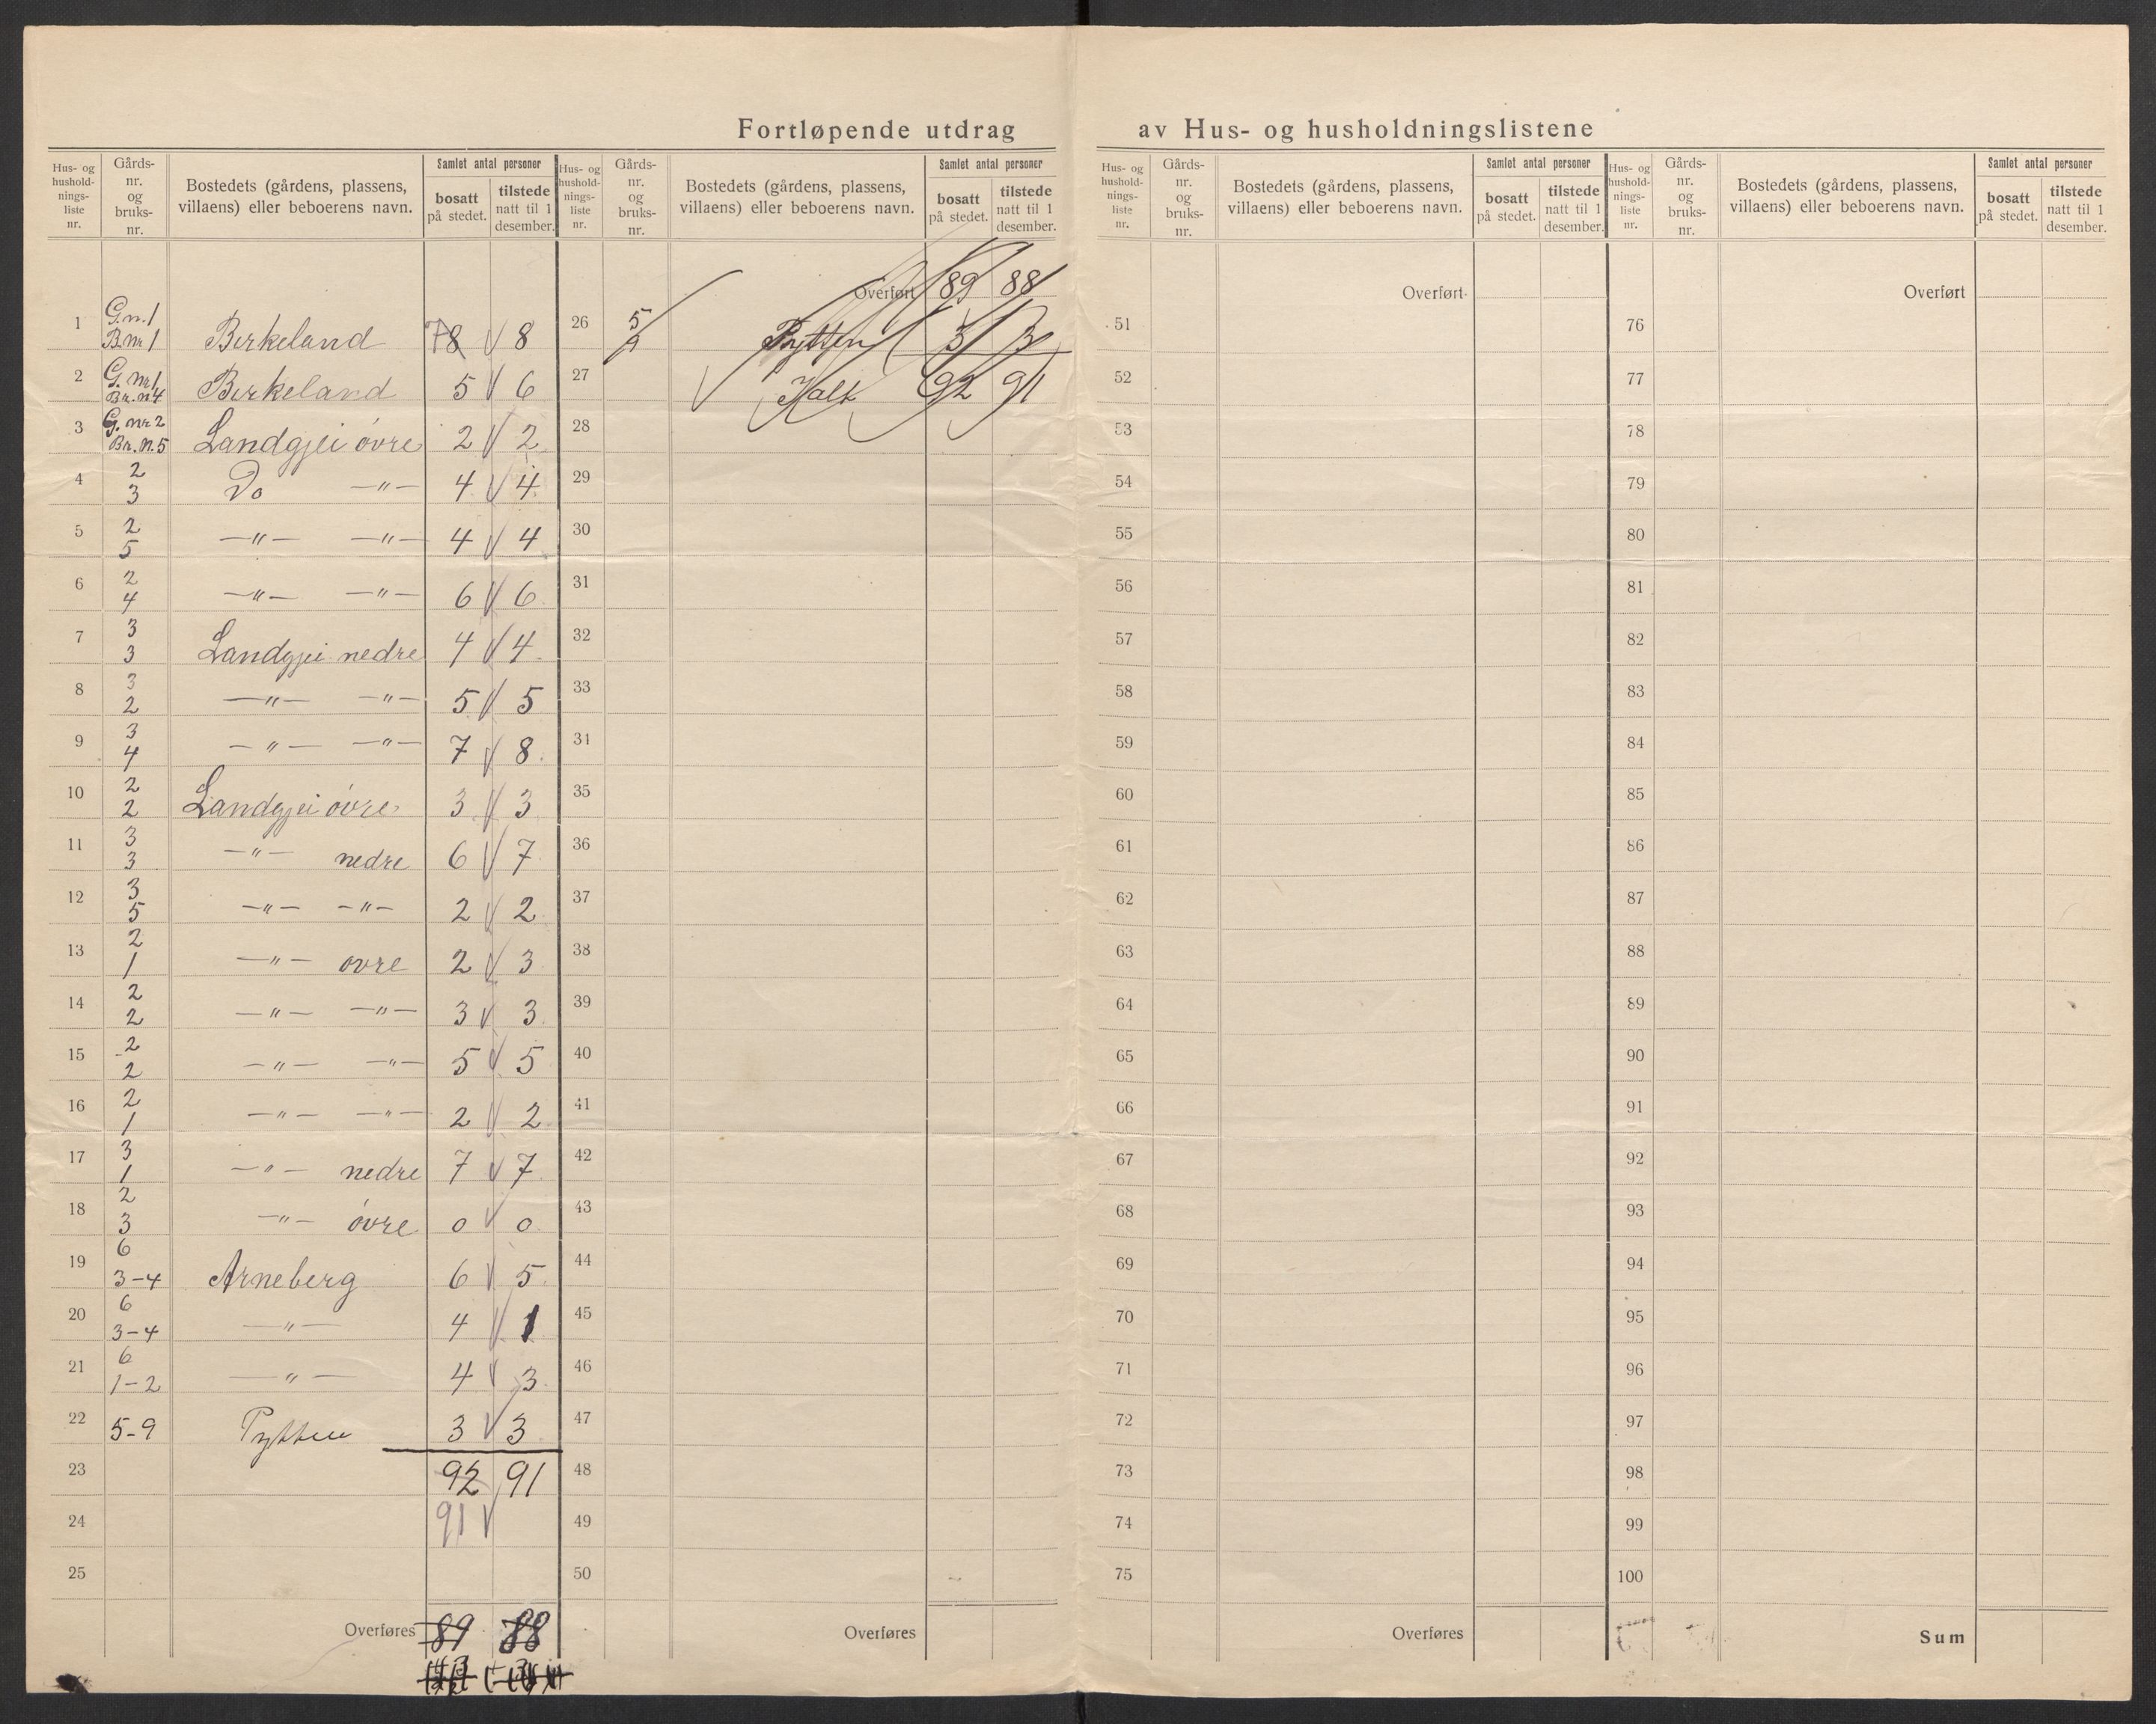 Fortløpende utdrag av Hus- og husholdningslistene
Hus- og hushold-nings-liste nr. Gårds-nr. og bruks-nr. Bostedets (gårdens, plassens, villaens) eller beboerens navn. Samlet antal personer bosatt på stedet. tilstede natt til 1 desember.
Hus- og hushold-nings-liste nr. Gårds-nr. og bruks-nr. Bostedets (gårdens, plassens, villaens) eller beboerens navn. Samlet antal personer bosatt på stedet. tilstede natt til 1 desember.
Hus- og hushold-nings-liste nr. Gårds-nr. og bruks-nr. Bostedets (gårdens, plassens, villaens) eller beboerens navn. Samlet antal personer bosatt på stedet. tilstede natt til 1 desember.
Hus- og hushold-nings-liste nr. Gårds-nr. og bruks-nr. Bostedets (gårdens, plassens, villaens) eller beboerens navn. Samlet antal personer bosatt på stedet. tilstede natt til 1 desember.
1 G.n. 1 B.nr 1 Birkeland 78 8
2 G. nr 1 Br. n 4 Birkeland 5 6
3 G. nr 2 Br. N. 5 Landgjei övre 2 2
4 2 3 Do —"— 4 4
5 2 5 —"— —"— 4 4
6 2 4 —"— —"— 6 6
7 3 3 Landgjei nedre 4 4
8 3 2 —"— —"— 5 5
9 3 4 —"— —"— 7 8
10 2 2 Landgjei övre 3 3
11 3 3 —"— nedre 6 7
12 3 5 —"— —"— 2 2
13 2 1 —"— ovre 2 3
14 2 2 —"— —"— 3 3
15 2 2 —"— —"— 5 5
16 2 1 —"— —"— 2 2
17 3 1 —"— nedre 7 7
18 2 3 —"— övre 0 0
19 6 3-4 Arneberg 6 5
20 6 3-4 —"— 4 1
21 6 1-2 —"— 4 3
22 5-9 Pytten 3 3
23 92 91
24 91
25
Overføres 89 88
Overført 89 88
26 5 Pytten 3 3
27 92 91
28
29
30
31
32
33
31
35
36
37
38
39
40
41
42
43
44
45
46
47
48
49
50
Overføres
Overført
51
52
53
54
55
56
57
58
59
60
61
62
63
64
65
66
67
68
69
70
71
72
73
74
75
Overføres
Overført
76
77
78
79
80
81
82
83
84
85
86
87
88
89
90
91
92
93
94
95
96
97
98
99
100
Sum